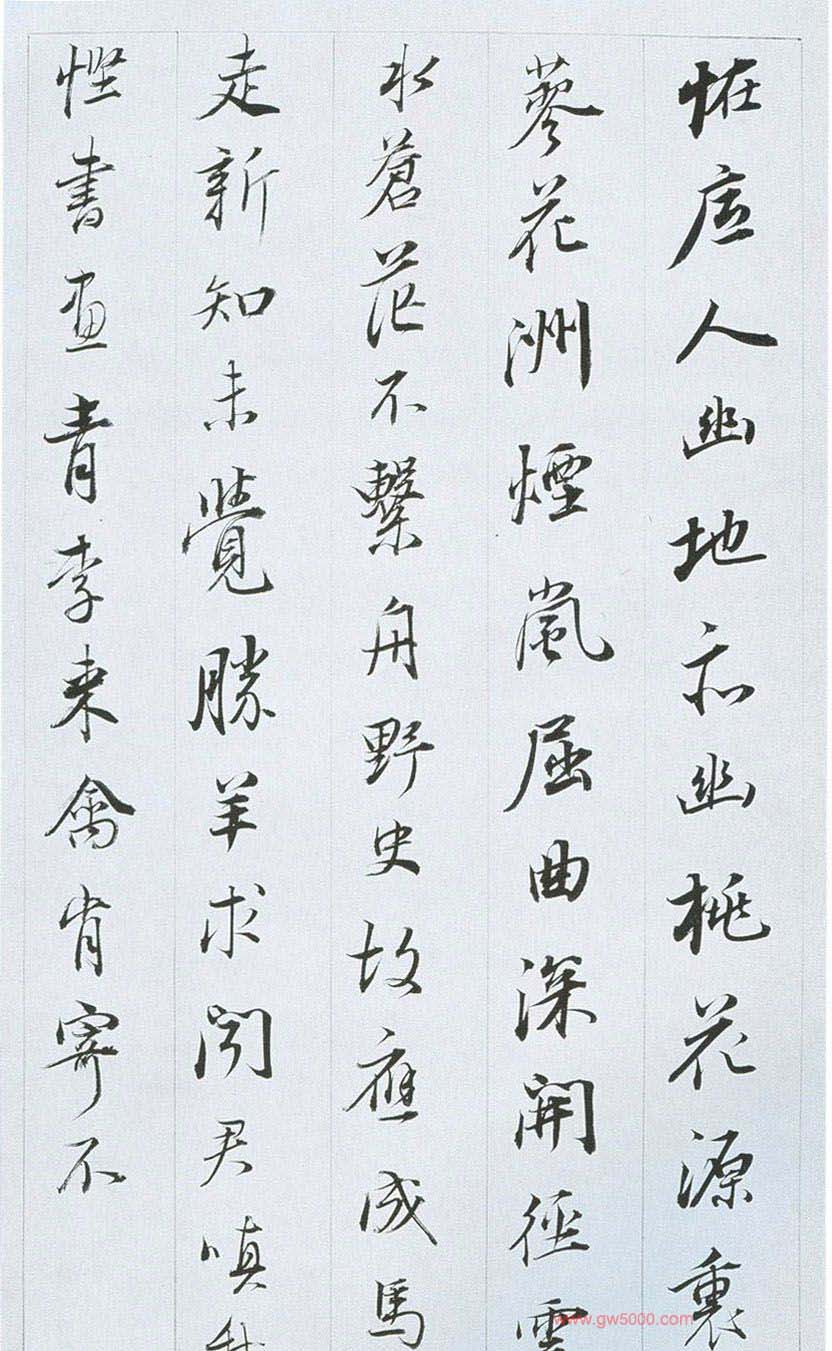 恠底人幽地亦幽桃花源裏
蓼花洲煙嵐屈曲深開徑雲
水蒼茫不繫舟野史故應成馬
走新知未覺勝羊求聞君嗔
慳書畫青李來禽肯寄不
www.gw5000.com